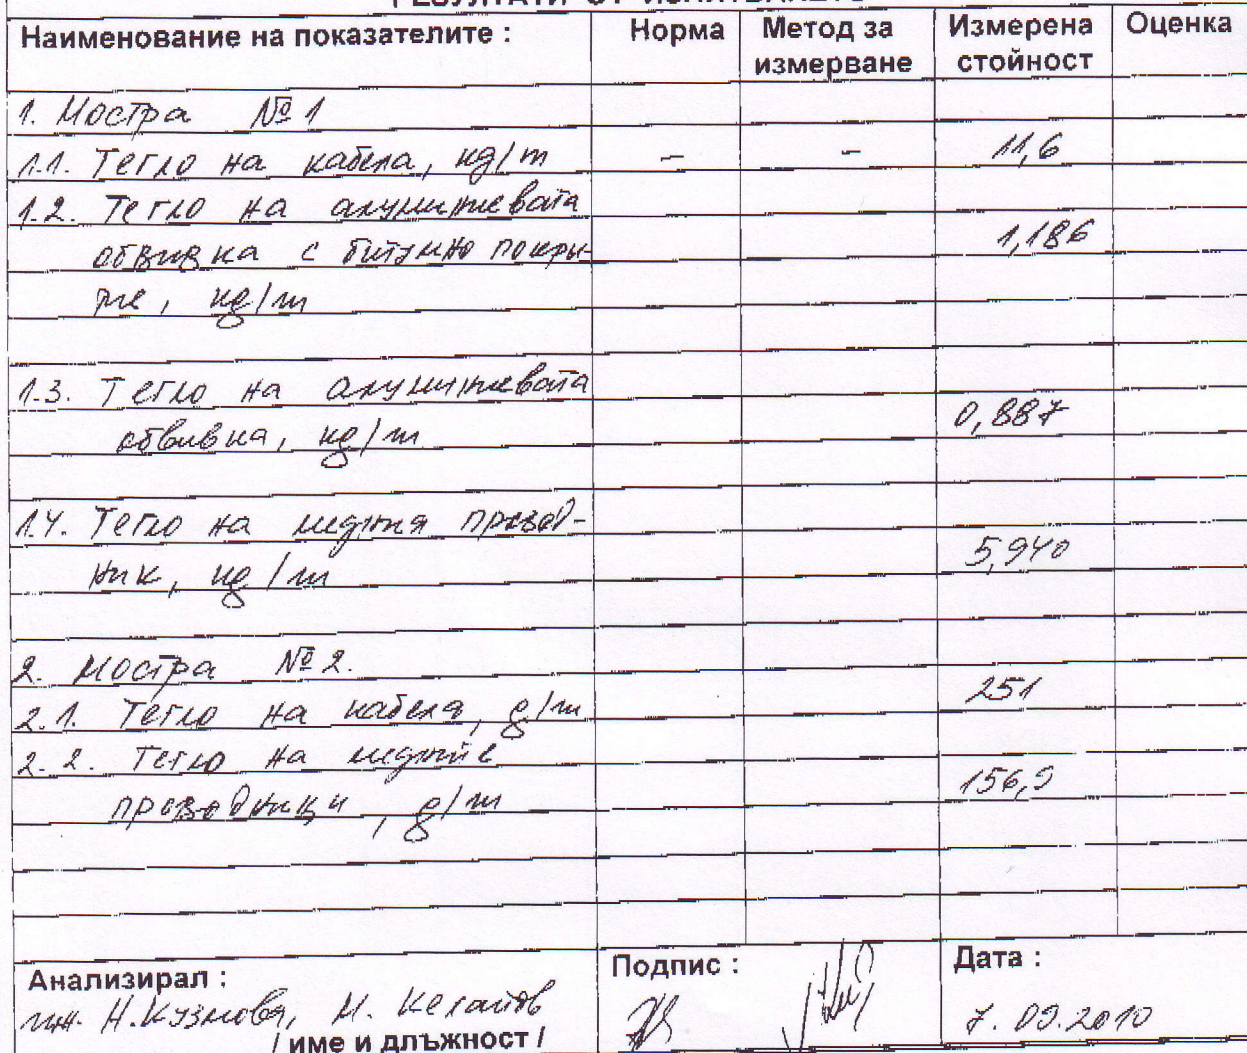 РЕЗУЛТАТИ ОТ ИЗПИТВАНЕТО
Наименование на показателите : Норма Метод за измерване Измерена стойност Оценка
1. Мостра № 1
1.1. Тегло на кабела, kg/m - - 11,6
1.2. Тегло на алуминиевата
обвивка с битумно покри- 1,186
тие, kg/m
1.3. Тегло на алуминиевата
обвивка, kg/m 0,887
1.4. Тегло на медния провод-
ник, kg/m 5,940
2. Мостра № 2.
2.1. Тегло на кабела, g/m 251
2.2. Тегло на медните
проводници, g/m 156,9
Анализирал : Подпис : Дата :
инж. Н. Кузмова, М. 7. 09.2010
/ име и длъжност /